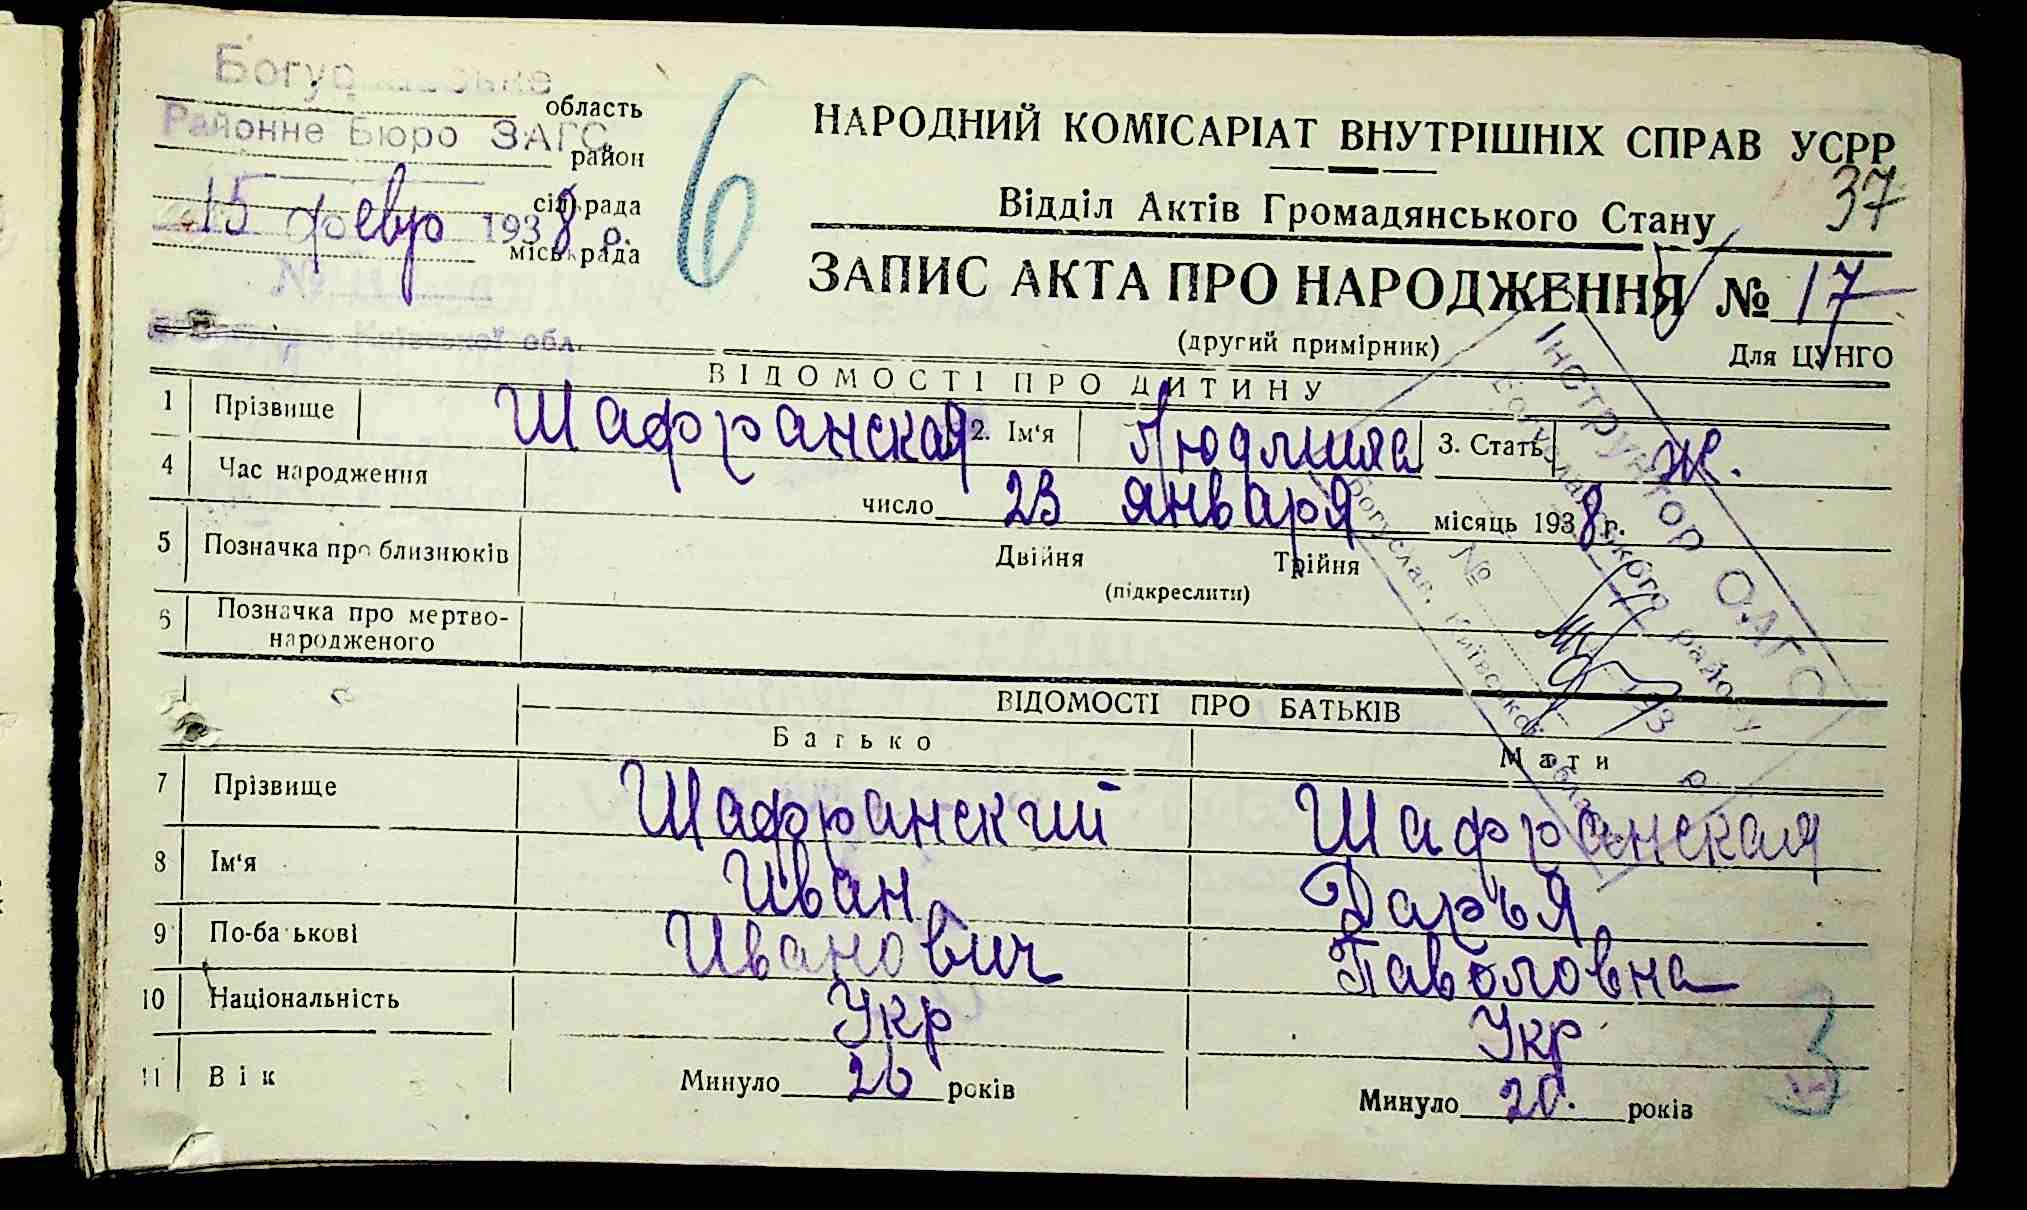 область
Районне Бюро ЗАГС
район
сільрада
15 февр 1938 р.
міськрада
№
Київської обл.
6
НАРОДНИЙ КОМІСАРІАТ ВНУТРІШНІХ СПРАВ УСРР
37
Відділ Актів Громадянського Стану
ЗАПИС АКТА ПРО НАРОДЖЕННЯ № 17
(другий примірник)
Для ЦУНГО
Інструктор ОАГС
Богуславського району
№
193 р.
м. Богуслав, Київської області
ВІДОМОСТІ ПРО ДИТИНУ
1 Прізвище Шафранская 2. Ім'я Людмила 3. Стать Ж.
4 Час народження число 23 января місяць 1938 г.
5 Позначка про близнюків Двійня Трійня
(підкреслити)
6 Позначка про мертво-
народженого
ВІДОМОСТІ ПРО БАТЬКІВ
Батько Мати
7 Прізвище Шафранский Шафранская
8 Ім'я Иван Дарья
9 По-батькові Иванович Паволовна
10 Національність Укр Укр
11 Вік Минуло 26 років Минуло 20. років